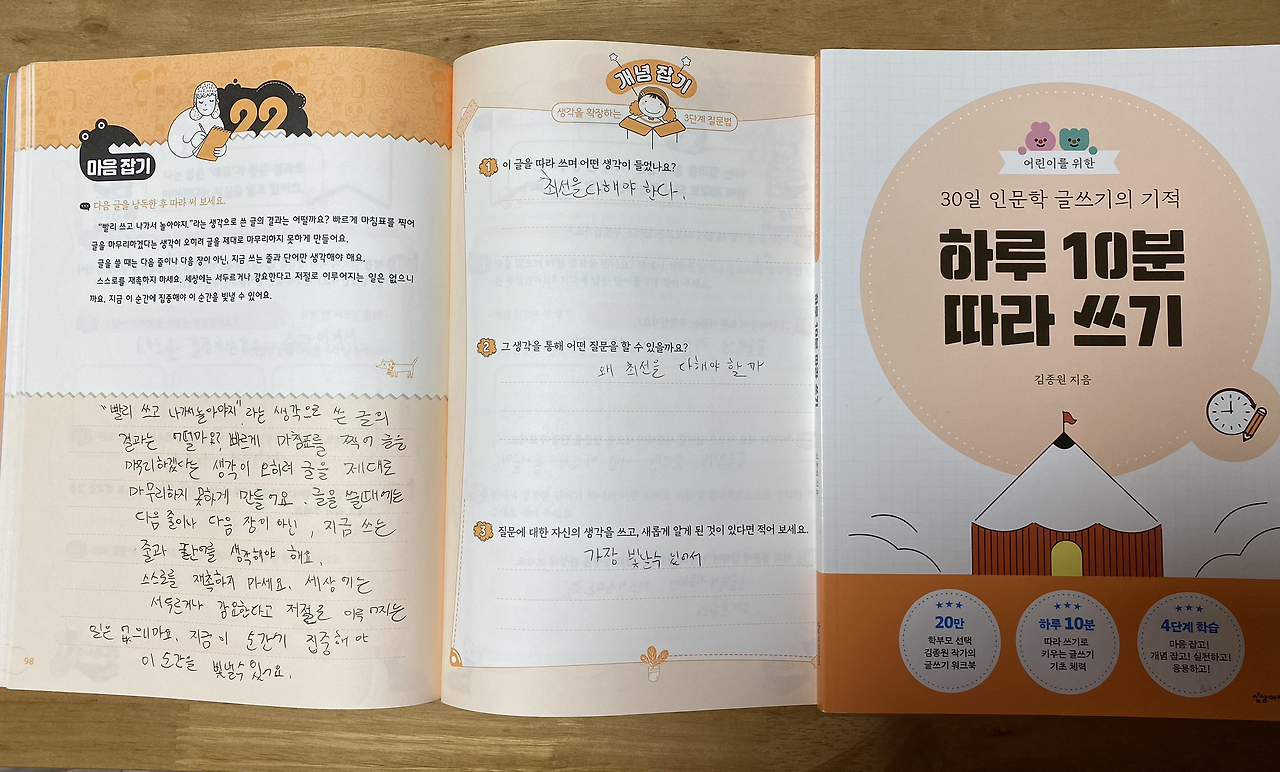 22
마음 잡기
다음 글을 낭독한 후 따라 써 보세요.
"빨리 쓰고 나가서 놀아야지."라는 생각으로 쓴 글의 결과는 어떨까요? 빠르게 마침표를 찍어
글을 마무리하겠다는 생각이 오히려 글을 제대로 마무리하지 못하게 만들어요.
글을 쓸 때는 다음 줄이나 다음 장이 아닌, 지금 쓰는 줄과 단어만 생각해야 해요.
스스로를 재촉하지 마세요. 세상에는 서두르거나 강요한다고 저절로 이루어지는 일은 없으니
까요. 지금 이 순간에 집중해야 이 순간을 빛낼 수 있어요.
"빨리 쓰고 나가서 놀아야지". 라는 생각으로 쓴 글의
결과는 어떨까요? 빠르게 마침표를 찍어 글을
마무리하겠다는 생각이 오히려 글을 제대로
마무리하지 못하게 만들어요. 글을 쓸때에는
다음 줄이나 다음 장이 아닌, 지금 쓰는
줄과 단어를 생각해야 해요.
스스로를 재촉하지 마세요. 세상에는
서두르거나 강요한다고 저절로 이루어지는
일은 없으니까요. 지금 이 순간에 집중해야
이 순간을 빛낼수있어요.
98
개념 잡기
생각을 확장하는 3단계 질문법
1 이 글을 따라 쓰며 어떤 생각이 들었나요?
최선을다해야 한다.
2 그 생각을 통해 어떤 질문을 할 수 있을까요?
왜 최선을 다해야 할까
3 질문에 대한 자신의 생각을 쓰고, 새롭게 알게 된 것이 있다면 적어 보세요.
가장 빛날수 있어서
하루 10분 따라 쓰기
어린이를 위한
30일 인문학 글쓰기의 기적
하루 10분
따라 쓰기
김종원 지음
20만
학부모 선택
김종원 작가의
글쓰기 워크북
하루 10분
따라 쓰기로
키우는 글쓰기
기초 체력
4단계 학습
마음 잡고!
개념 잡고! 실천하고!
응용하고!